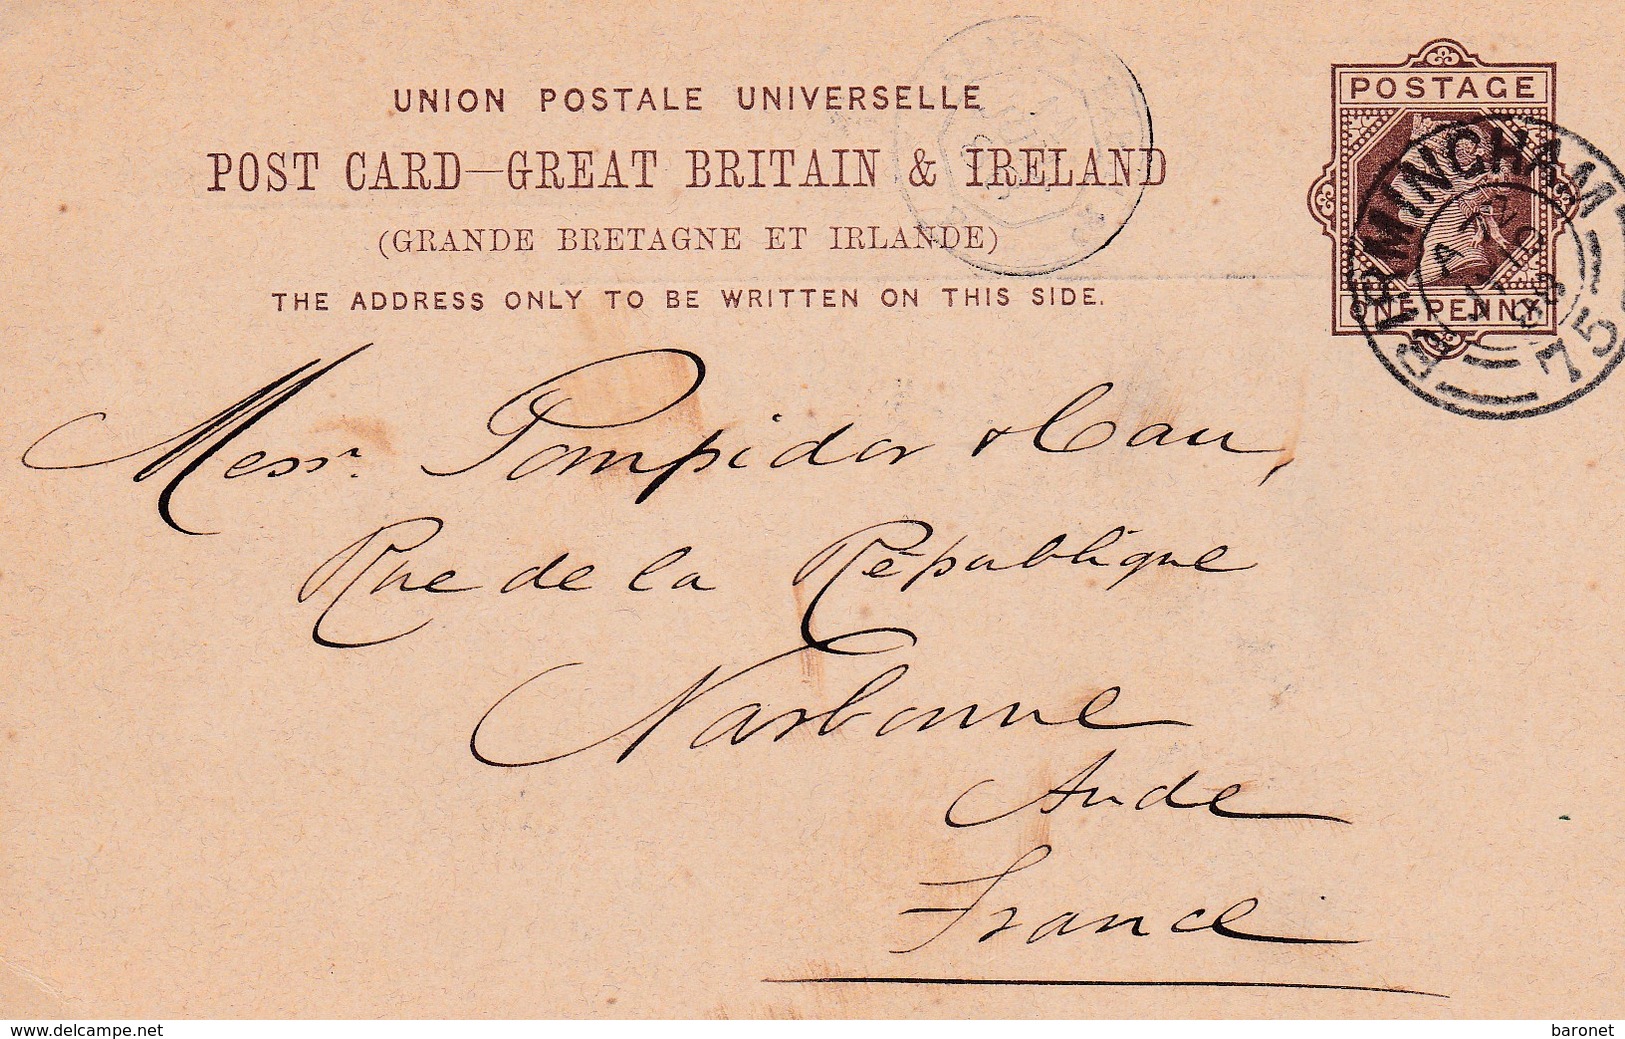 UNION POSTALE UNIVERSELLE
POST CARD—GREAT BRITAIN & IRELAND
(GRANDE BRETAGNE ET IRLANDE)
THE ADDRESS ONLY TO BE WRITTEN ON THIS SIDE.
POSTAGE
ONE PENNY
BIRMINGHAM
75
Messr. Pompidor &
Rue de la République
Narbonne
Aude
France
www.delcampe.net
baronet